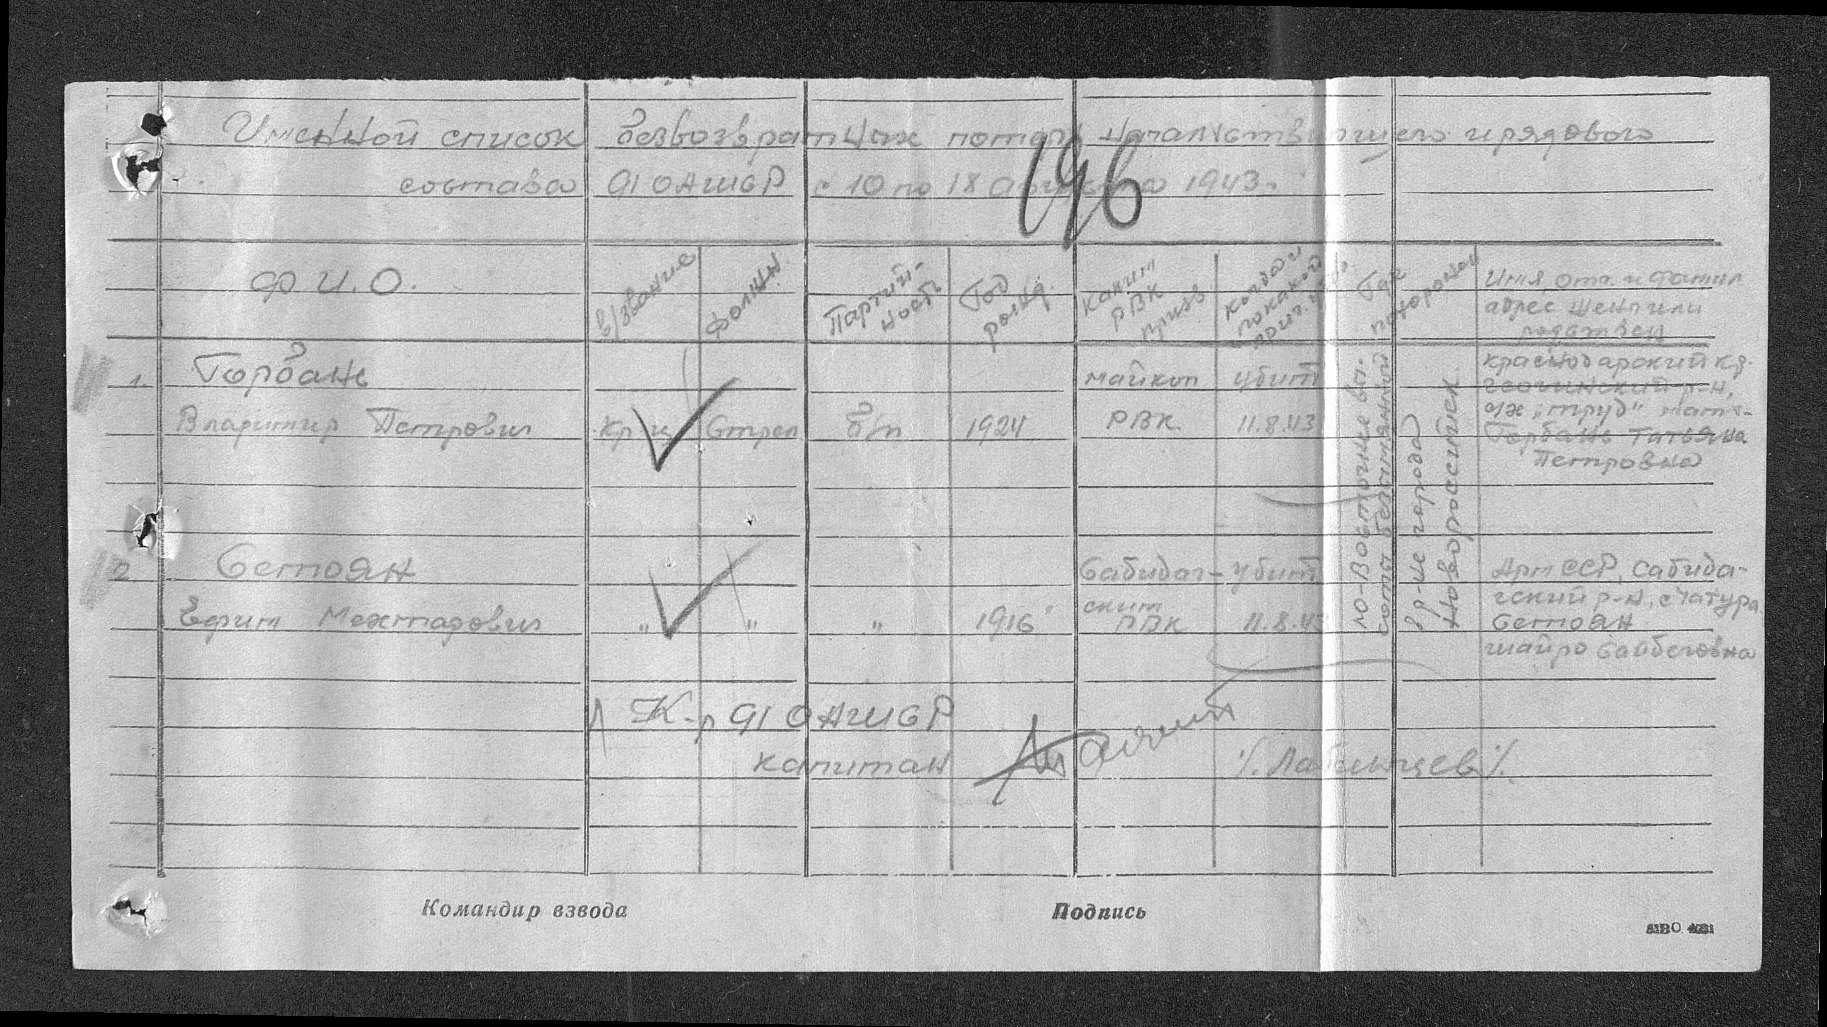 Именной список безвозвратных потерь начальствующего и рядового
состава 91 ОАШБР с 10 по 18 августа 1943 г.
196
Ф.И.О.
в/звание
Партий-
ность
Год
рожд.
Каким
РВК
призв
Когда и
по какой
прич.
Где
похоронен
Имя, отч. и фамил
адрес жены или
родствен
1. Горбань
Владимир Петрович
кр-ц
Стрел
б/п
1924
Майкоп
РВК
убит
11.8.43
Ю-Восточнее вы-
соты безымянной
р-не города
Новороссийск
Краснодарский кр.
р-н,
"труд" мать-
Горбань Татьяна
Петровна
2 Семоян
Ефрем
"
"
"
1916
Сабидог-
ским
РВК
убит
11.8.43
Арм ССР, Сабида-
гский р-н, с
Семоян
Шайро Сайбеговна
К-р 91 ОАШБР
капитан
Командир взвода
Подпись